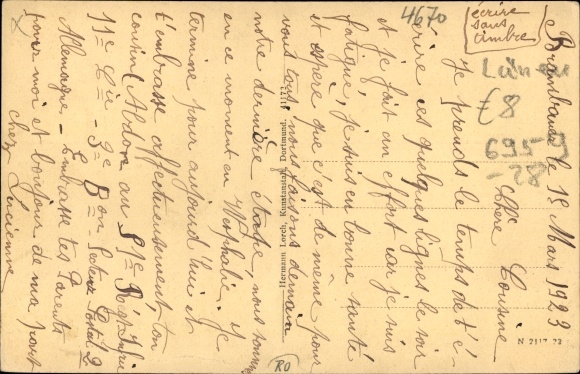 4670
(écrire
sans
timbre)
Lünen
€8
6959
-28
le 18 Mars 1923
Chère Cousine
Je prends le temps de t'é-
crire ces quelques lignes le soir
et je fait un effort car je suis
fatigué, je suis en bonne santé
et espère que c'est de même pour
vous tous, nous faisons demain
notre dernière étape, nous sommes
en ce moment en Wesphalie. Je
termine pour aujourd'hui et
t'embrasse affectueusement, ton
cousin Aldore au 51e Rég. Infrie
11e Cie - 3e Bon Secteur Postal 2
Allemagne - Embrasse tes Parents
pour moi et bonjour de ma part
chez Lucienne
Hermann Lorch, Kunstanstalt, Dortmund.
N 2117 22
RO